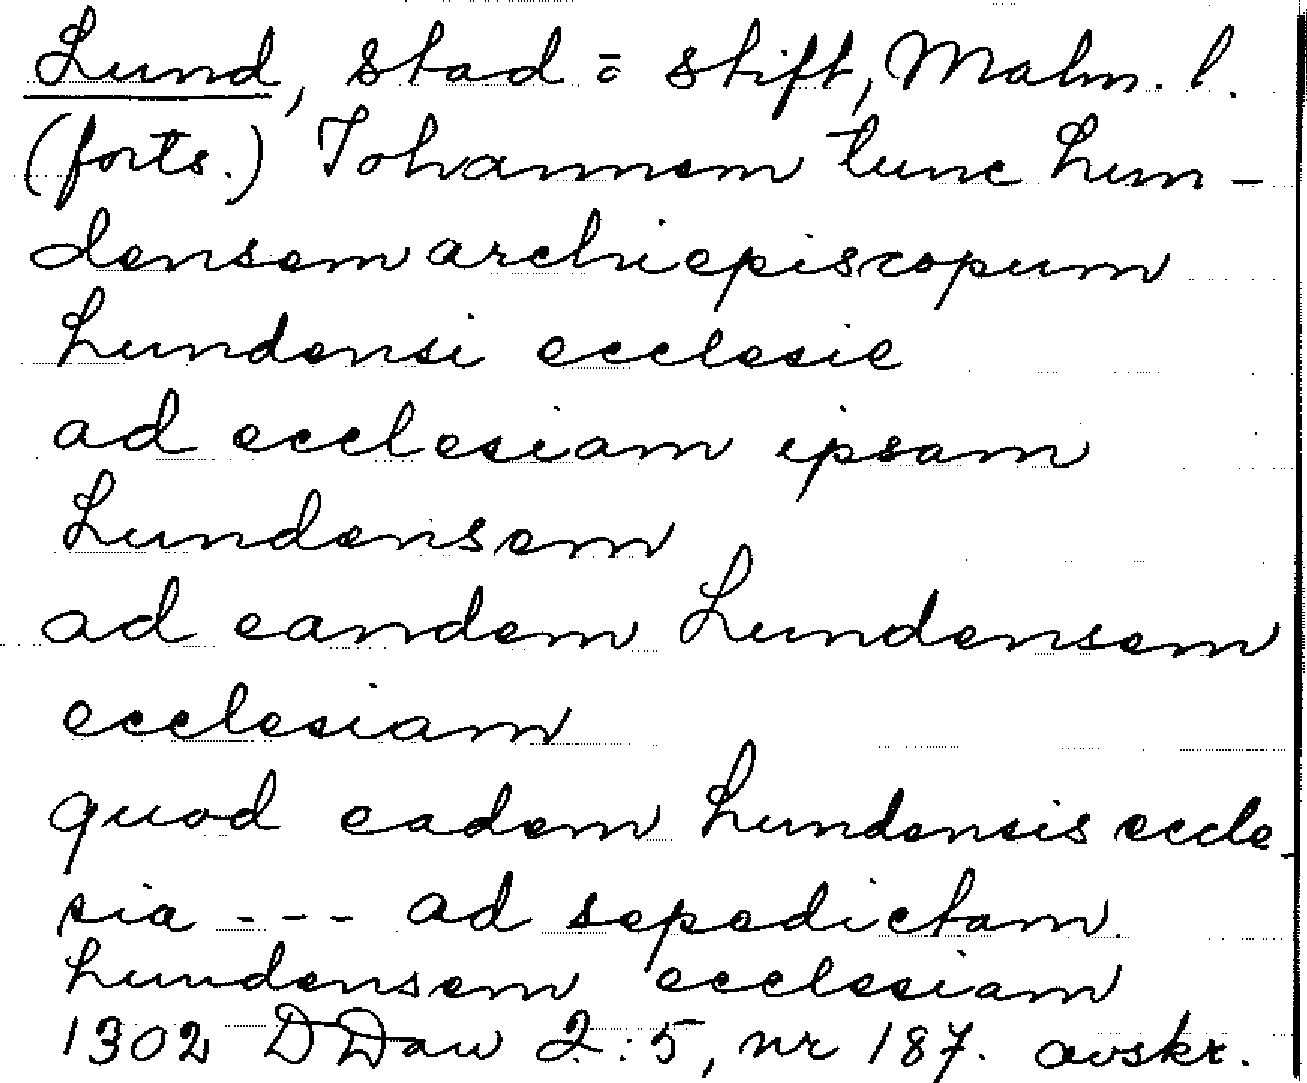 Lund, stad o stift, Malm. l.
(forts.) Johannem tunc Lun-
densem archiepiscopum
Lundensi ecclesie
ad ecclesiam ipsam
Lundensem
ad eandem Lundensem
ecclesiam
quod eadem Lundensis eccle-
sia --- ad sepedictam
Lundensem ecclesiam
1302 DDan 2:5, nr 187. avskr.